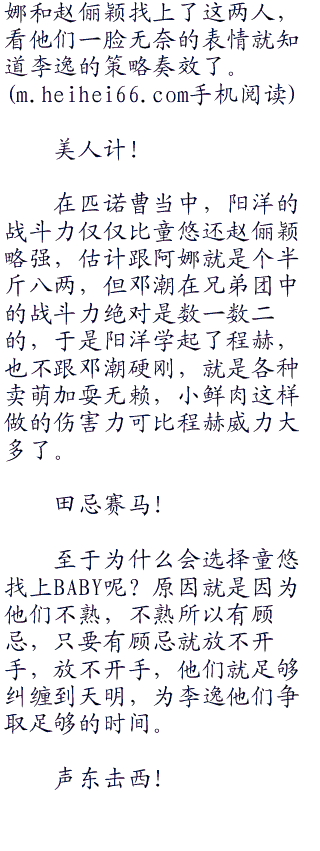 娜和赵俪颖找上了这两人，
看他们一脸无奈的表情就知
道李逸的策略奏效了。
(m.heihei66.com手机阅读)
美人计！
在匹诺曹当中，阳洋的
战斗力仅仅比童悠还赵俪颖
略强，估计跟阿娜就是个半
斤八两，但邓潮在兄弟团中
的战斗力绝对是数一数二
的，于是阳洋学起了程赫，
也不跟邓潮硬刚，就是各种
卖萌加耍无赖，小鲜肉这样
做的伤害力可比程赫威力大
多了。
田忌赛马！
至于为什么会选择童悠
找上BABY呢？原因就是因为
他们不熟，不熟所以有顾
忌，只要有顾忌就放不开
手，放不开手，他们就足够
纠缠到天明，为李逸他们争
取足够的时间。
声东击西！